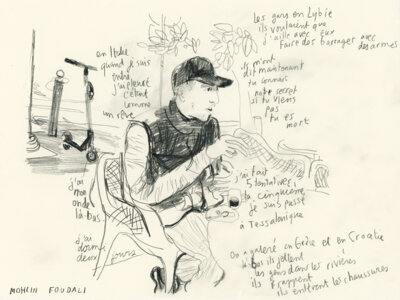 les gars en Lybie
ils voulaient que
j'aille avec eux
faire des barrages avec
des armes
en Italie
quand je suis
entré
j'ai pleuré
c'était
comme
un rêve
ils m'ont
dit maintenant
tu connais
notre secret
si tu viens
pas
tu es
mort
j'ai
mon
oncle
là-bas
j'ai
dormi
deux jours
j'ai fait
5 tentatives
la cinquième
je suis passé
à Tessalonique
on a galéré en Grèce et en Croatie
ils jettent
les gens dans les rivières
ils frappent
ils enlèvent les chaussures
MOHCIN FOUDALI